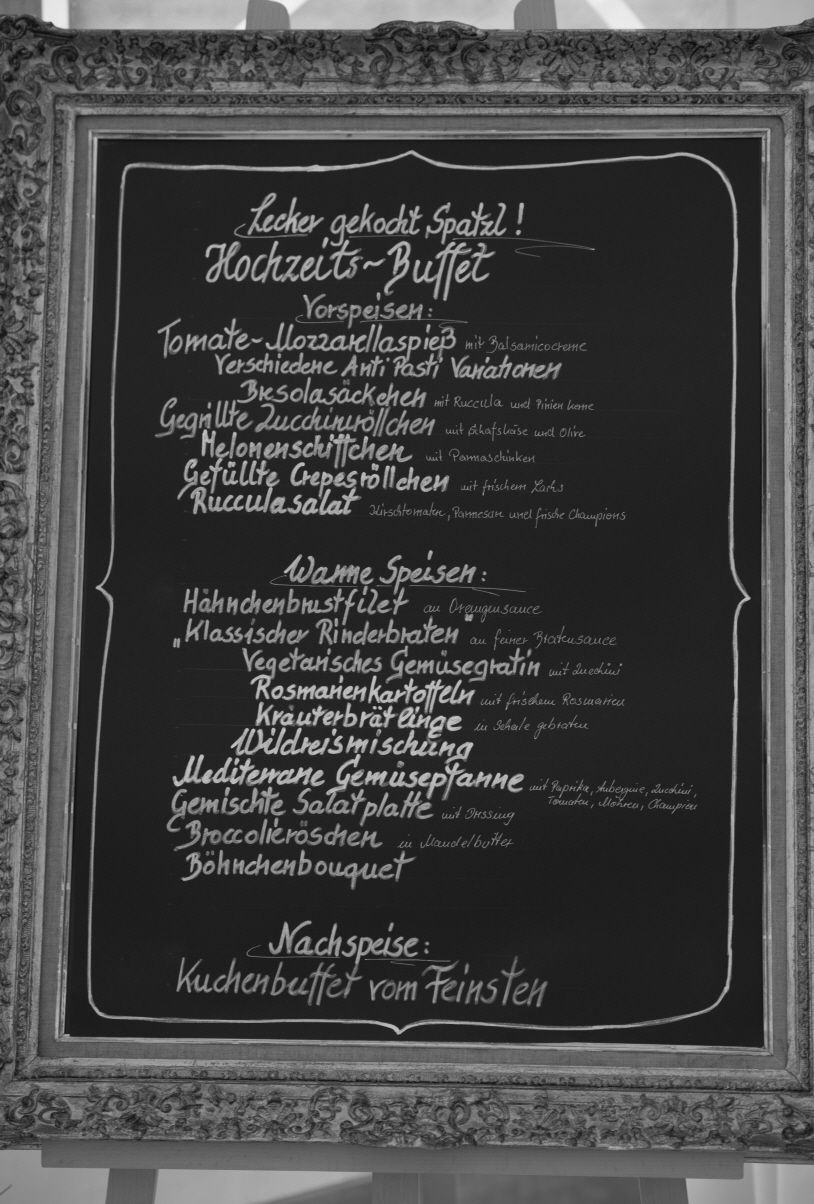 Lecker gekocht, Spatzl!
Hochzeits~Buffet
Vorspeisen:
Tomate-Mozzarellaspieß mit Balsamicocreme
Verschiedene Anti Pasti Variationen
Bresolasäckchen mit Ruccula und Pinien kerne
Gegrillte Zucchiniröllchen mit Schafskäse und Olive
Melonenschiffchen mit Parmaschinken
Gefüllte Crepesröllchen mit frischem Lachs
Rucculasalat Kirschtomaten, Parmesan und frische Champions
Warme Speisen:
Hähnchenbrustfilet an Orangensauce
„Klassischer Rinderbraten" an feiner Bratensauce
Vegetarisches Gemüsegratin mit Zucchini
Rosmarienkartoffeln mit frischem Rosmarien
Kräuterbrätlinge in Schale gebraten
Wildreismischung
Mediterrane Gemüsepfanne mit Paprika, Aubergine, Zucchini,
Tomaten, Möhren, Champion
Gemischte Salatplatte mit Dressing
Broccolieröschen in Mandelbutter
Böhnchenbouquet
Nachspeise:
Kuchenbuffet vom Feinsten